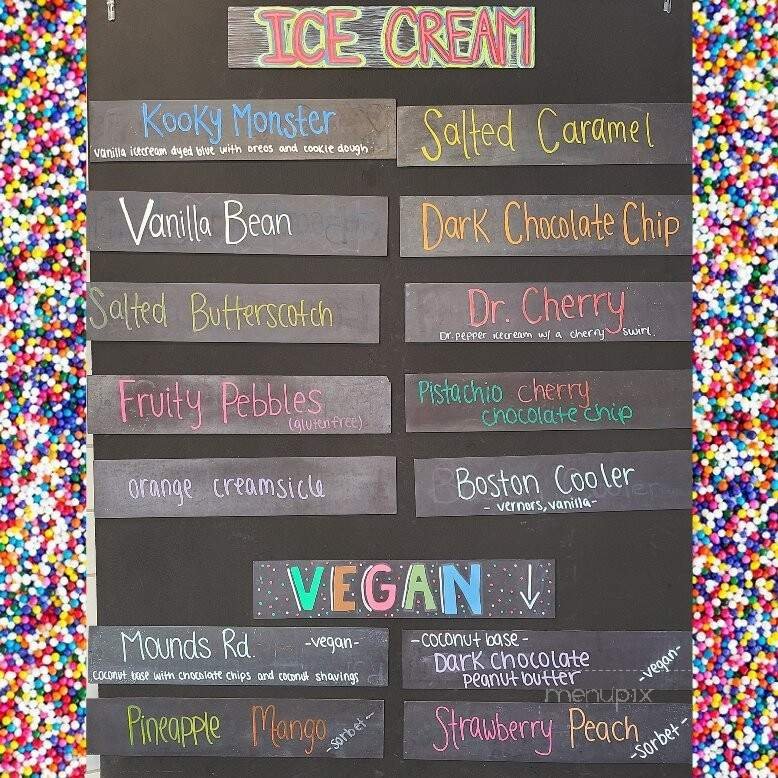 ICE CREAM
Kooky Monster
vanilla icecream dyed blue with oreos and cookie dough
Salted Caramel
Vanilla Bean
Dark Chocolate Chip
Salted Butterscotch
Dr. Cherry
Dr. pepper icecream w/ a cherry swirl.
Fruity Pebbles
(glutenfree)
Pistachio cherry
chocolate chip
orange creamsicle
Boston Cooler
- vernors, vanilla -
VEGAN ↓
Mounds Rd. -vegan-
coconut base with chocolate chips and coconut shavings
- coconut base -
Dark chocolate
peanut butter -vegan-
menupix
Pineapple Mango -sorbet-
Strawberry Peach -sorbet-